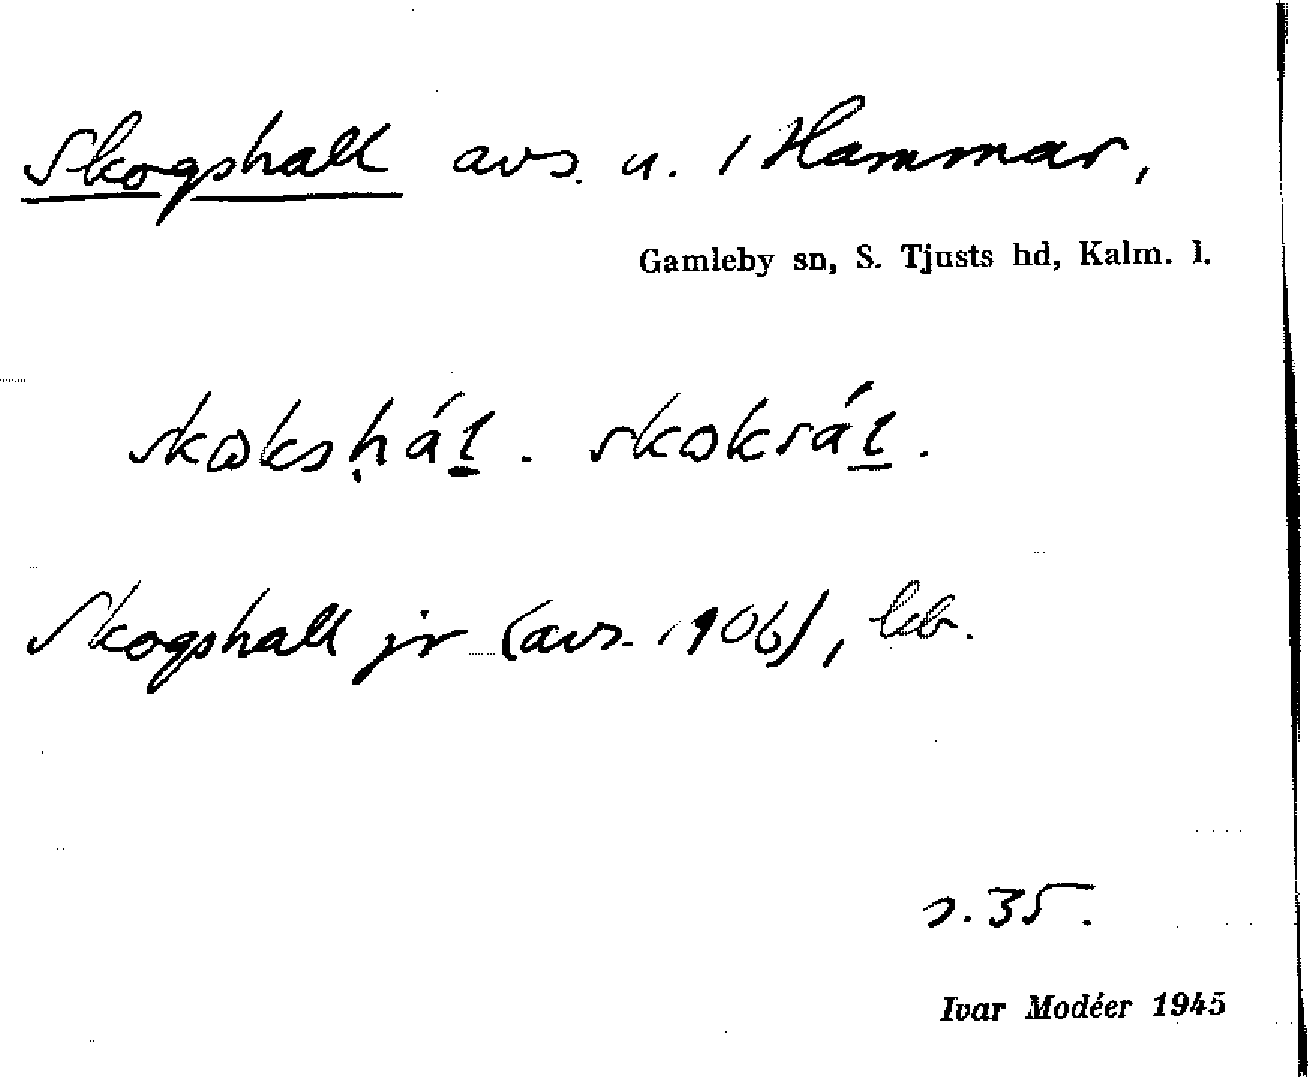 Skogshall avs. u. 1 Hammar,
Gamleby sn, S. Tjusts hd, Kalm. l.
skoksḥál̲. skoksál̲.
Skogshall jr (avs. 1906), lcb.
s. 35.
Ivar Modéer 1945